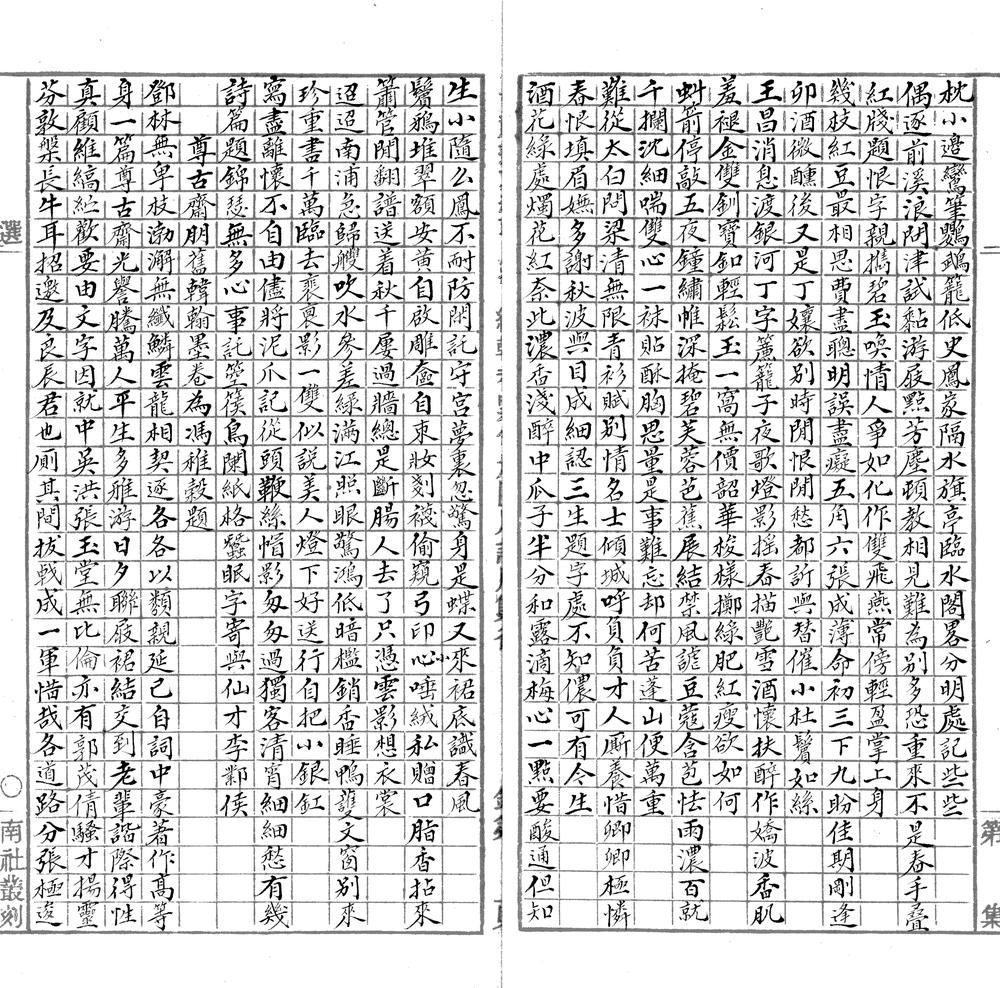 枕小邉鸞筆鸚鵡籠低史鳳家隔水旗亭臨水閣畧分明處記些些
偶逐前溪浪問津試黏游屐點芳塵頓教相見難為別多恐重來不是春手疊
紅牋題恨字親撝碧玉喚情人爭如化作雙飛燕常傍輕盈掌上身
幾枝紅豆最相思費盡聰明誤盡癡五角六張成薄命初三下九盼佳期剛逢
卯酒微醺後又是丁孃欲別時閒恨閒愁都訴與替催小杜鬢如絲
王昌消息渡銀河丁字簾籠子夜歌燈影搖春描艷雪酒懷扶醉作嬌波香肌
羞褪金雙釧寶釦輕鬆玉一窩無價韶華梭樣擲綠肥紅瘦欲如何
蚪箭停敲五夜鐘繡帷深掩碧芙蓉芭蕉展結禁風謔豆蔻含苞怯雨濃百就
千攔沈細喘雙心一袜貼酥胸思量是事難忘却何苦蓬山便萬重
難從太白問梁清無限青衫賦別情名士傾城呼負負才人厮養惜卿卿極憐
春恨填眉嫵多謝秋波與目成細認三生題字處不知儂可有今生
酒花綠處燭花紅奈此濃香淺醉中瓜子半分和露滴梅心一點要酸通但知
生小隨公鳳不耐防閑託守宮夢裏忽驚身是蝶又來裙底識春風
鬢鴉堆翠額安黃自啟雕奩自束妝剗襪偷窺弓印小心唾絨私贈口脂香拈來
簫管閒翻譜送着秋千屢過牆總是斷腸人去了只憑雲影想衣裳
迢迢南浦急歸艘吹水參差綠滿江照眼驚鴻低暗檻銷香睡鴨護文窗別來
珍重書千萬臨去裹裏影一雙似說美人燈下好送行自把小銀釭
寫盡離懷不自由儘將泥爪記從頭鞭絲帽影匆匆過獨客清宵細細愁有幾
詩篇題錦瑟無多心事託箜篌烏闌紙格蠶眠字寄與仙才李鄴侯
尊古齋朋舊翰墨卷為馮稚穀題
鄧林無卑枝渤澥無纖鱗雲龍相契逐各各以類親延己自詞中豪著作高等
身一篇尊古齋光譽騰萬人平生多雅游日夕聯屐裙結交到老輩諧際得性
真顧維縞紵歡要由文字因就中吳洪張玉堂無比倫亦有郭茂倩騷才揚靈
芬敦槃長牛耳招邀及良辰君也厠其間拔戟成一軍惜哉各道路分張極逡
選
○
南社叢刻
二
第
集